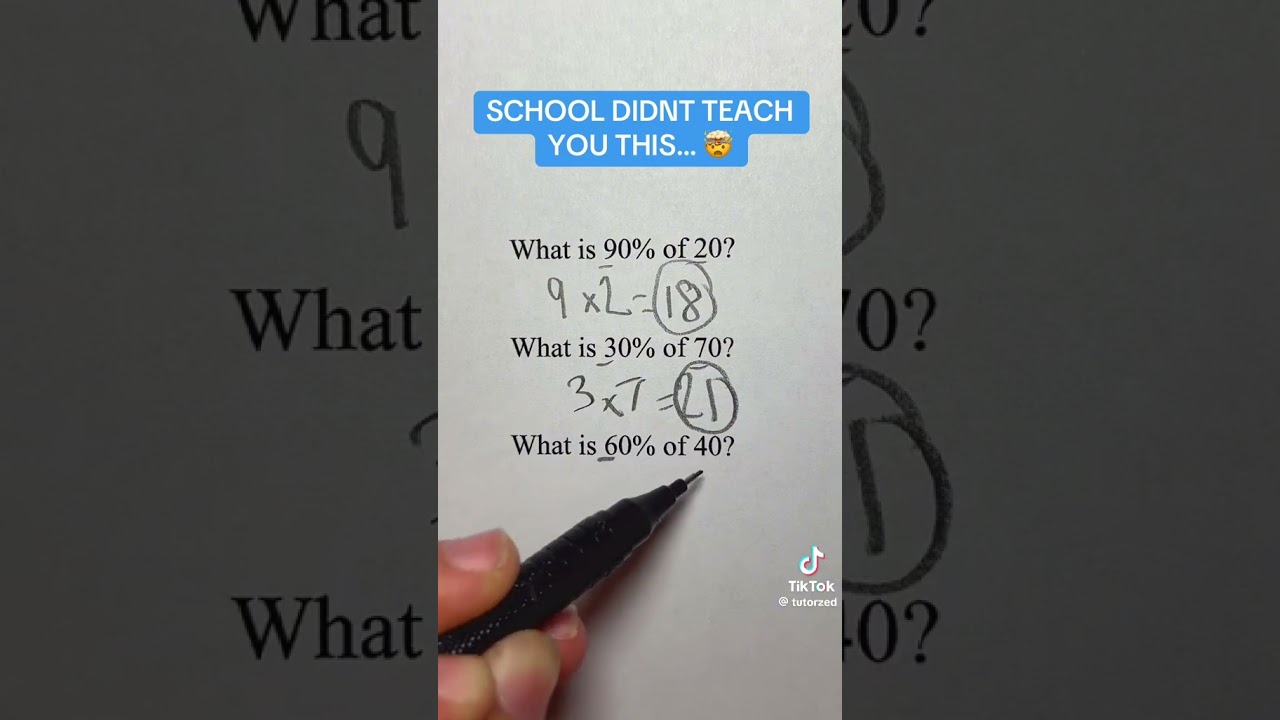 SCHOOL DIDNT TEACH
YOU THIS... 🤯
What is 90% of 20?
9 x 2 = 18
What is 30% of 70?
3 x 7 = 21
What is 60% of 40?
TikTok
@ tutorzed
What
20?
9
What
70?
What
40?